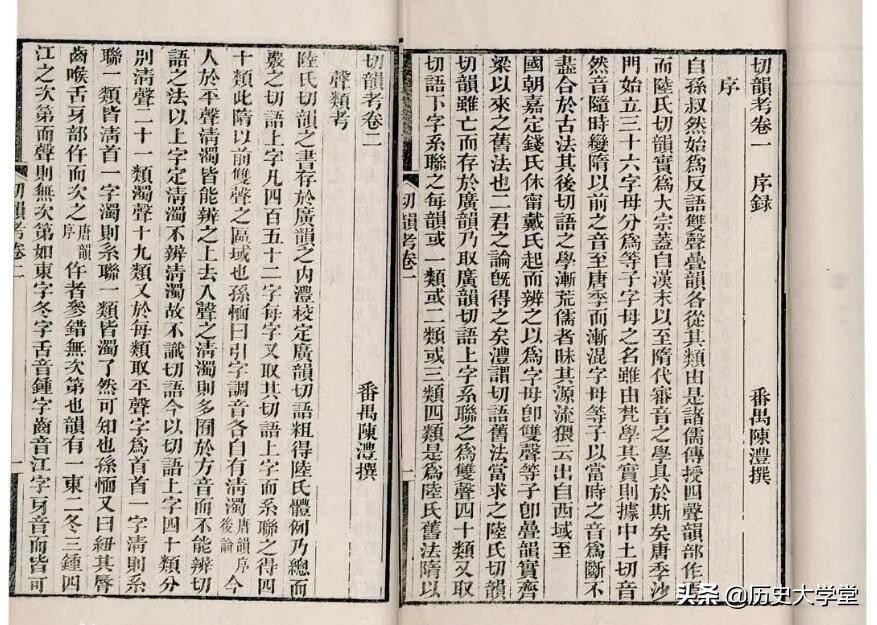 切韻考卷一　序録
番禺陳澧撰
序
自孫叔然始為反語雙聲疊韻各從其類由是諸儒傳授四聲韻部作焉
而陸氏切韻實為大宗蓋自漢末以至隋代審音之學具於斯矣唐季沙
門始立三十六字母分為等子字母之名雖由梵學其實則據中土切音
然音隨時變隋以前之音至唐季而漸混字母等子以當時之音為斷不
盡合於古法其後切語之學漸荒儒者昧其源流猥云出自西域至
國朝嘉定錢氏休甯戴氏起而辨之以為字母卽雙聲等子卽疊韻實齊
梁以來之舊法也二君之論旣得之矣澧謂切語舊法當求之陸氏切韻
切韻雖亡而存於廣韻乃取廣韻切語上字系聯之為雙聲四十類又取
切語下字系聯之每韻或一類或二類或三類四類是為陸氏舊法隋以
切韻考卷一
切韻考卷二
番禺陳澧撰
聲類考
陸氏切韻之書存於廣韻之內澧校定廣韻切語粗得陸氏體例乃總而
覈之切語上字凡四百五十二字每字又取其切語上字而系聯之得四
十類此隋以前雙聲之區域也孫愐曰引字調音各自有清濁唐韻序後論今
人於平聲清濁皆能辨之上去入聲之清濁則多囿於方音而不能辨切
語之法以上字定清濁不辨清濁故不識切語今以切語上字四十類分
別清聲二十一類濁聲十九類又於每類取平聲字為首首一字清則系
聯一類皆清首一字濁則系聯一類皆濁了然可知也孫愐又曰紐其脣
齒喉舌牙部仵而次之唐韻序仵者參錯無次第也韻有一東二冬三鍾四
江之次第而聲則無次第如東字冬字舌音鍾字齒音江字牙音而皆可
切韻考卷二
头条 @历史大学堂